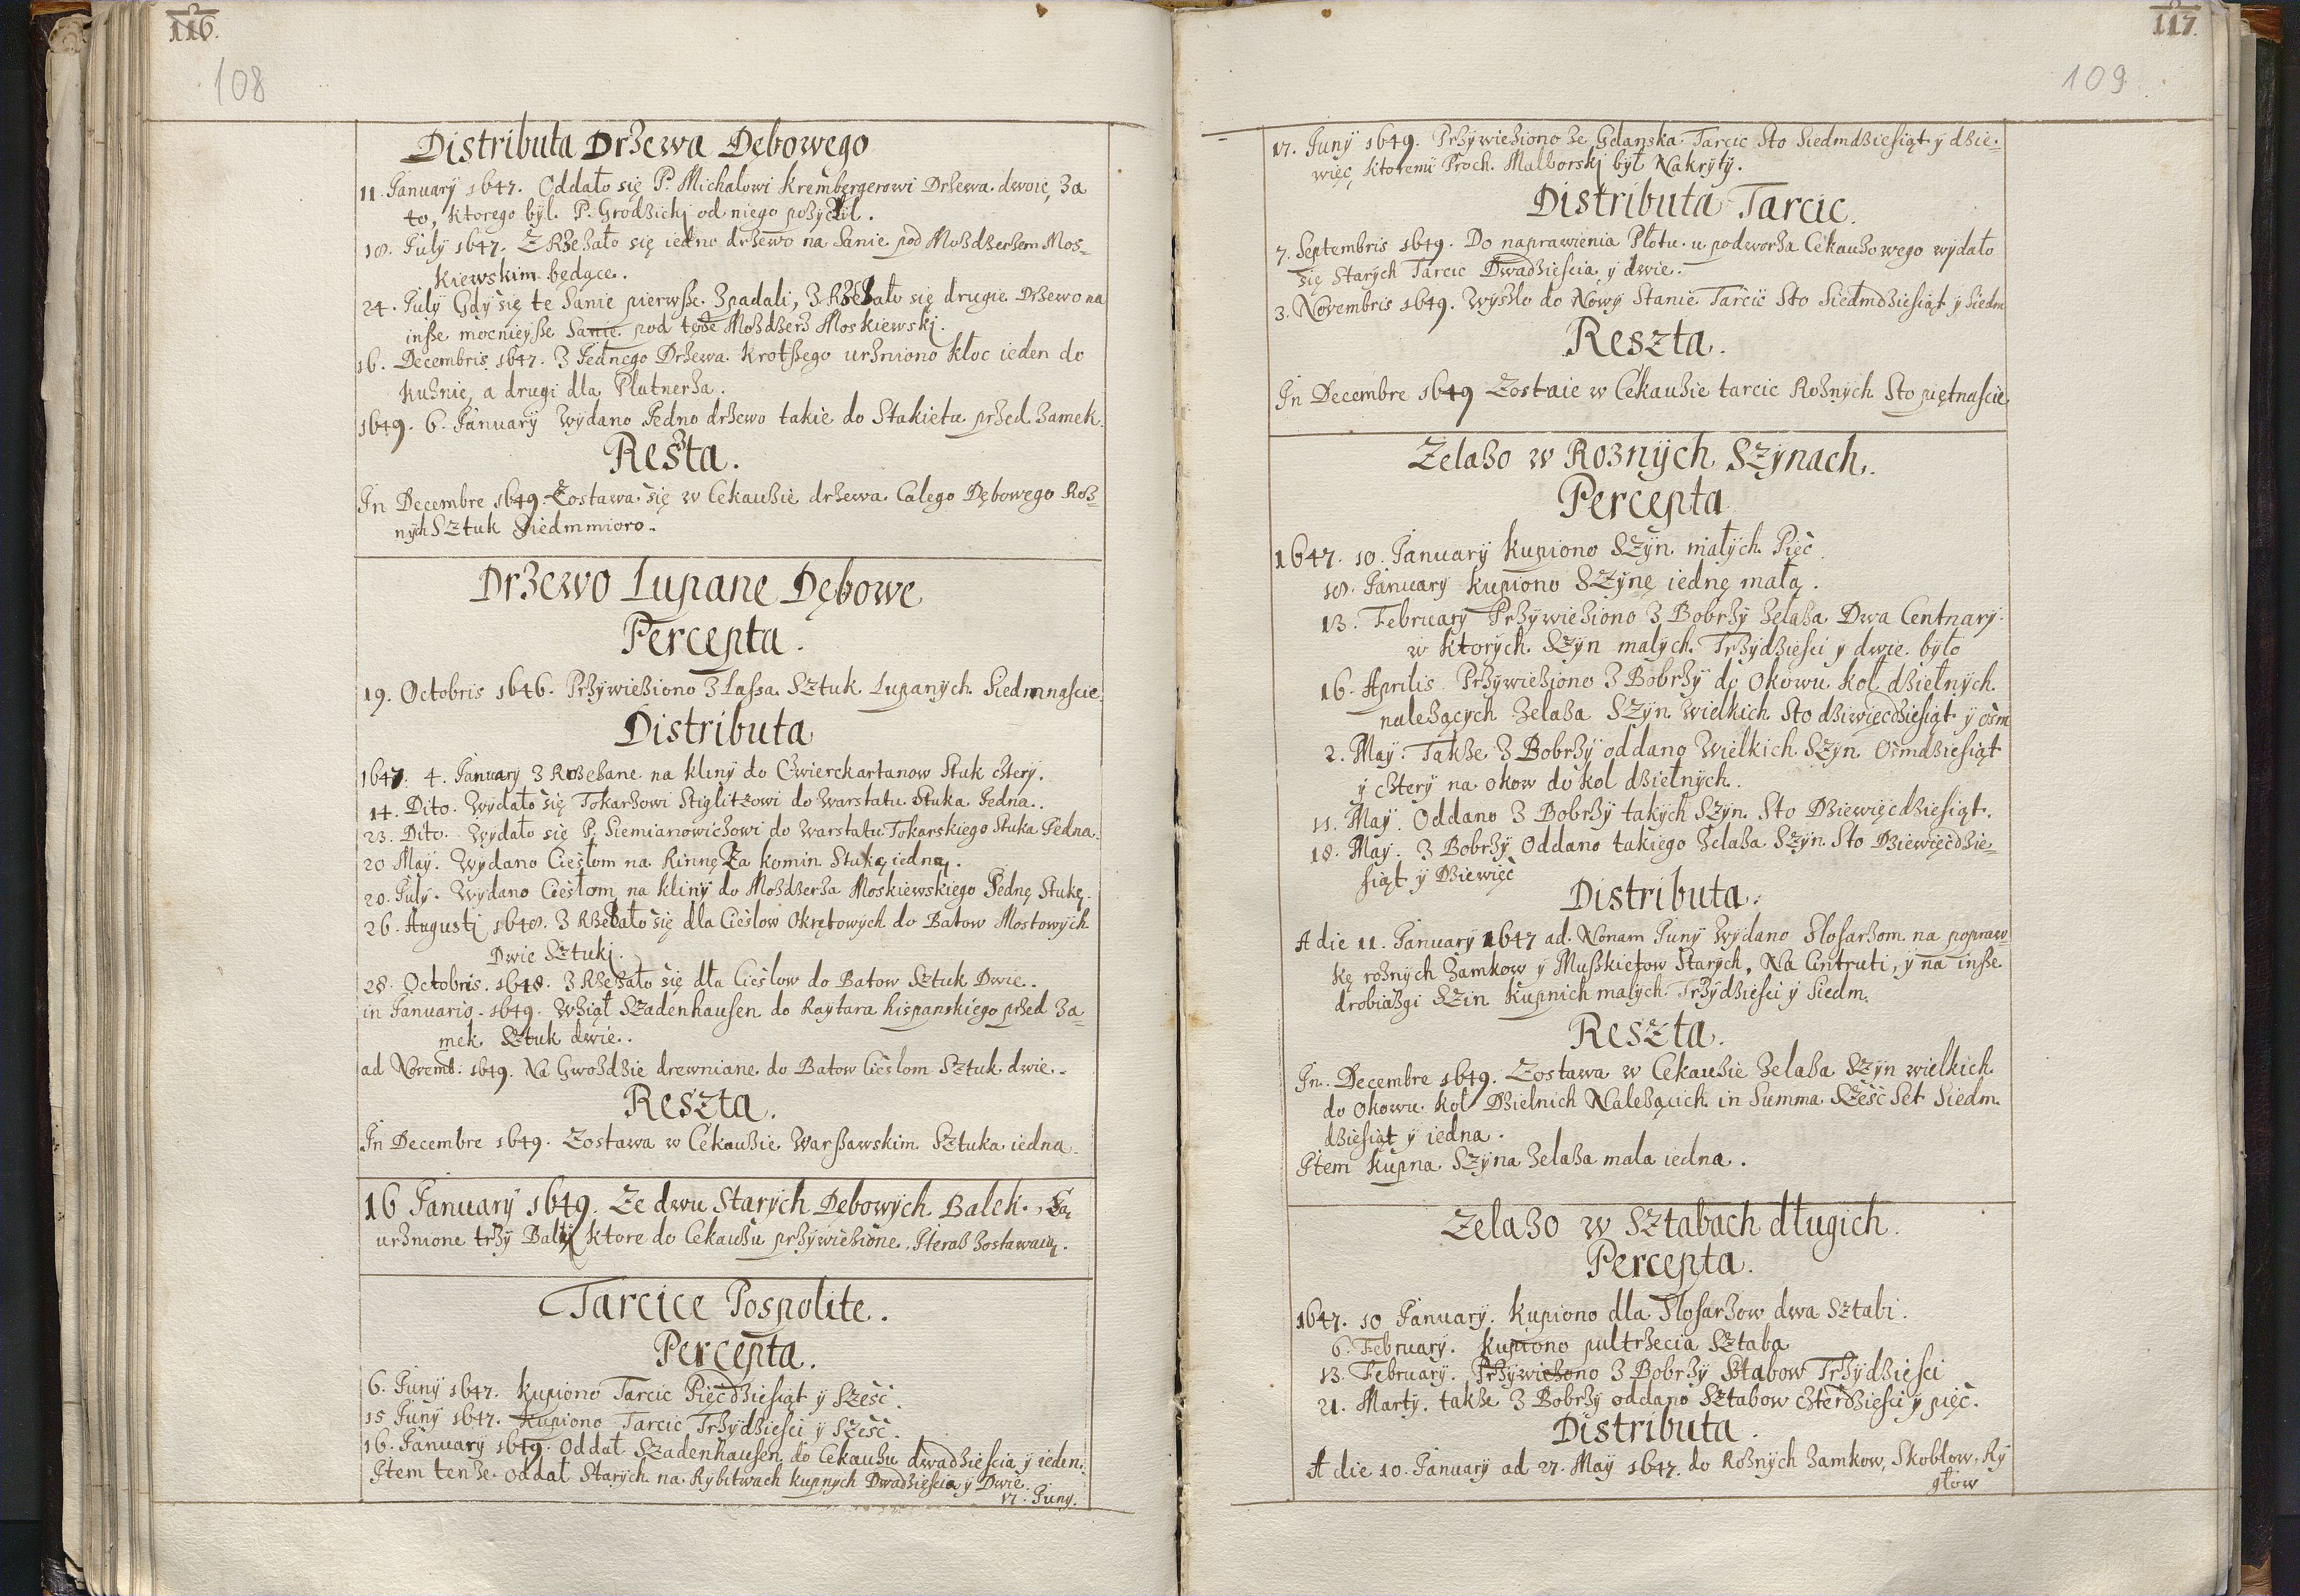 116.
108
Distributa Drzewa Dębowego
11. January 1647. Oddało się P. Michałowi Krembergerowi Drzewa dwoie, za
to, ktorego był P. Grodzickj od niego pożycził.
18. July 1647. Zrzezało się iedno drzewo na Sanie pod Mozdzerzem Mos-
kiewskim będące.
24. July Gdy się te Sanie pierwsze zpadali, zrzezało się drugie Drzewo na
insze mocnieysze Sanie pod tenże Mozdzerz Moskiewskj.
16. Decembris 1647. z Jednego Drzewa Krotszego urzniono kloc ieden do
Kuznie, a drugi dla Płatnerza.
1649. 6. January Wydano Jedno drzewo takie do Stakietu przed Zamek.
Reszta.
In Decembre 1649 Zostawa się w Cekauzie drzewa Całego Dębowego Roz-
nych Sztuk Siedmmioro.
Drzewo Łupane Dębowe
Percepta.
19. Octobris 1646. Przywieziono z Lassa Sztuk Łupanych Siedmnascie.
Distributa
1647. 4. January zrzezane na kliny do Cwierckartanow Stuk cztery.
14. Dito. Wydało się Tokarzowi Stiglitzowi do Warstatu Stuka Jedna.
23. Dito. Wydało się P. Siemianowiczowi do Warstatu Tokarskiego Stuka Jedna.
20 May. Wydano Cieslom na Rinnę Za komin Stukę iednę.
20. July. Wydano Cieslom na kliny do Mozdzerza Moskiewskiego Jednę Stukę.
26. Augusti 1648. zrzezało się dla Cieslow Okrętowych do Batow Mostowych
Dwie Sztukj.
28. Octobris. 1648. zrzezało się dla Cieslow do Batow Sztuk Dwie.
in Januario 1649. Wziął Szadenhausen do Raytara hispanskiego przed Za-
mek Sztuk dwie.
ad Novemb: 1649. Na Gwozdzie drewniane do Batow Cieslom Sztuk dwie.
Reszta.
In Decembre 1649. Zostawa w Cekauzie Warszawskim Sztuka iedna.
16 January 1649. Ze dwu Starych Dębowych Balek. Są
urznione trzy Balij ktore do Cekauzu przywiezione, J teraz zostawaią.
Tarcice Pospolite.
Percepta.
6. Juny 1647. Kupiono Tarcic Pięcdziesiąt y Szesc.
15 Juny 1647. Kupiono Tarcic Trzydziesci y Szesc.
16. January 1649. Oddał Szadenhausen do Cekauzu dwadziescia y ieden.
Item tenże oddał Starych na Rybitwach kupnych Dwadziescia y Dwie.
17. Juny.
117.
109
17. Juny 1649. Przywieziono ze Gdanska Tarcic Sto Siedmdziesiąt y dzie-
więc, ktoremi Proch Malborskj był Nakryty.
Distributa Tarcic.
7. Septembris 1649. Do naprawienia Płotu u podworza Cekauzowego wydało
się Starych Tarcic Dwadziescia y dwie.
3. Novembris 1649. Wyszło do Nowy Stanie Tarcic Sto Siedmdziesiąt y Siedm
Reszta.
In Decembre 1649 Zostaie w Cekauzie tarcic Roznych Sto piętnascie
Żelazo w Roznych Szynach.
Percepta
1647. 10. January Kupiono Szyn małych Pięc.
18. January Kupiono Szynę iednę małą.
13. February Przywieziono z Bobrzy żelaza Dwa Centnary
w ktorych Szyn małych Trzydziesci y dwie było
16. Aprilis Przywieziono z Bobrzy do okowu koł dzielnych
należących żelaza Szyn Wielkich Sto dziwięcdziesiąt y osm
2. May. Takze z Bobrzy oddano Wielkich Szyn Osmdziesiąt
y cztery na okow do kol dzielnych.
11. May. Oddano z Bobrzy takych Szyn Sto Dziewięcdziesiąt.
18. May. z Bobrzy Oddano takiego Żelaza Szyn Sto Dziewięcdzie-
siąt y Dziewięc
Distributa.
A die 11. January 1647 ad Nonam Juny Wydano Slosarzom na popraw-
kę roznych Zamkow y Muszkietow Starych, Na Antruti, y na insze
drobiazgi Szin kupnich małych Trzydziesci y Siedm.
Reszta.
In. Decembre 1649. Zostawa w Cekauzie Żelaza Szyn wielkich
do okowu koł Dzielnich Należąich in Summa Szesc Set Siedm
dziesiąt y iedna.
Item kupna Szyna Żelaza mala iedna.
Żelazo w Sztabach długich.
Percepta.
1647. 10 January. Kupiono dla Slosarzow dwa Sztabi.
6. February. Kupiono pultrzecia Sztaba
13. February. Przywiezono z Bobrzy Sztabow Trzydziesci
21. Marty. takze z Bobrzy oddano Sztabow czterdziesci y pięc.
Distributa.
A die 10. January ad 27. May 1647. do Roznych Zamkow, Skoblow, Ry
glow